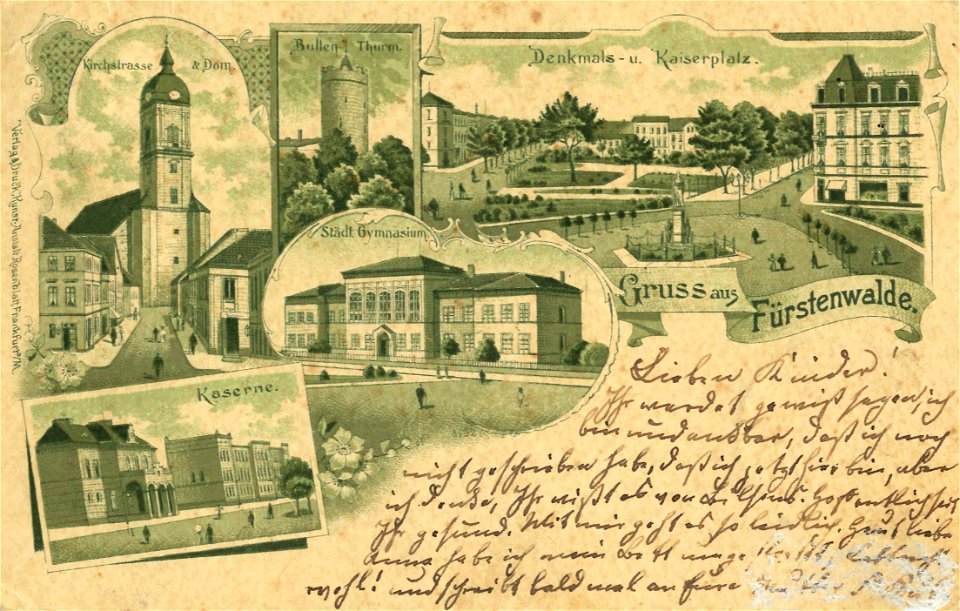 Kirchstrasse & Dom.
Bullen Thurm.
Denkmals- u. Kaiserplatz.
Städt. Gymnasium.
Gruss aus
Fürstenwalde.
Kaserne.
Verlag & Druck Kunst-Anstalt Rosenblatt Frankfurt a/M.
Lieben Kinder!
Ihr werdet gewiß sagen, ich
bin undankbar, daß ich noch
nicht geschrieben habe, daß ich jetzt hier bin, aber
ich denke, Ihr wißt es von Hoffentlich seid
Ihr gesund. Mit mir geht es so leidlich. Heut liebe
Anna habe ich mein Bett
wohl! und schreibt bald mal an Eure